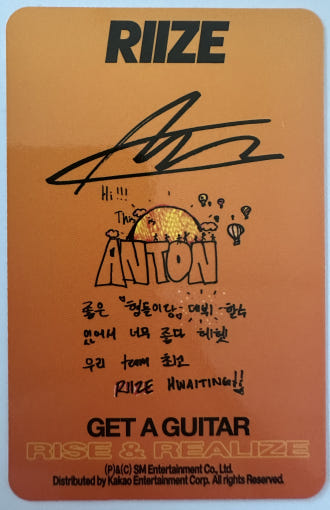 RIIZE
Hi!!!
This
ANTON
좋은 형들이랑 데뷔 할 수
있어서 너무 좋다 헤헷
우리 team 최고
RIIZE HWAITING!!
GET A GUITAR
RISE & REALIZE
(P)&(C) SM Entertainment Co., Ltd.
Distributed by Kakao Entertainment Corp. All rights Reserved.